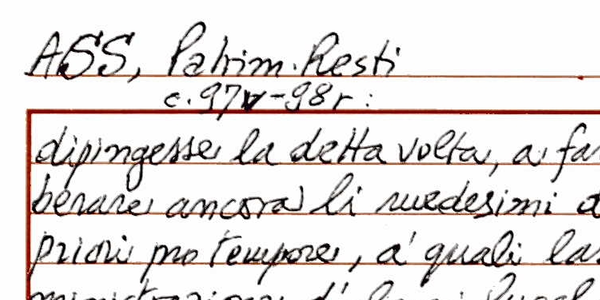 ASS, Patrim. Resti
c. 97v-98r:
dipingesse la detta volta, a fa
berare ancora li medesimi d
priori pro tempore, a' quali las
ministrazione d'